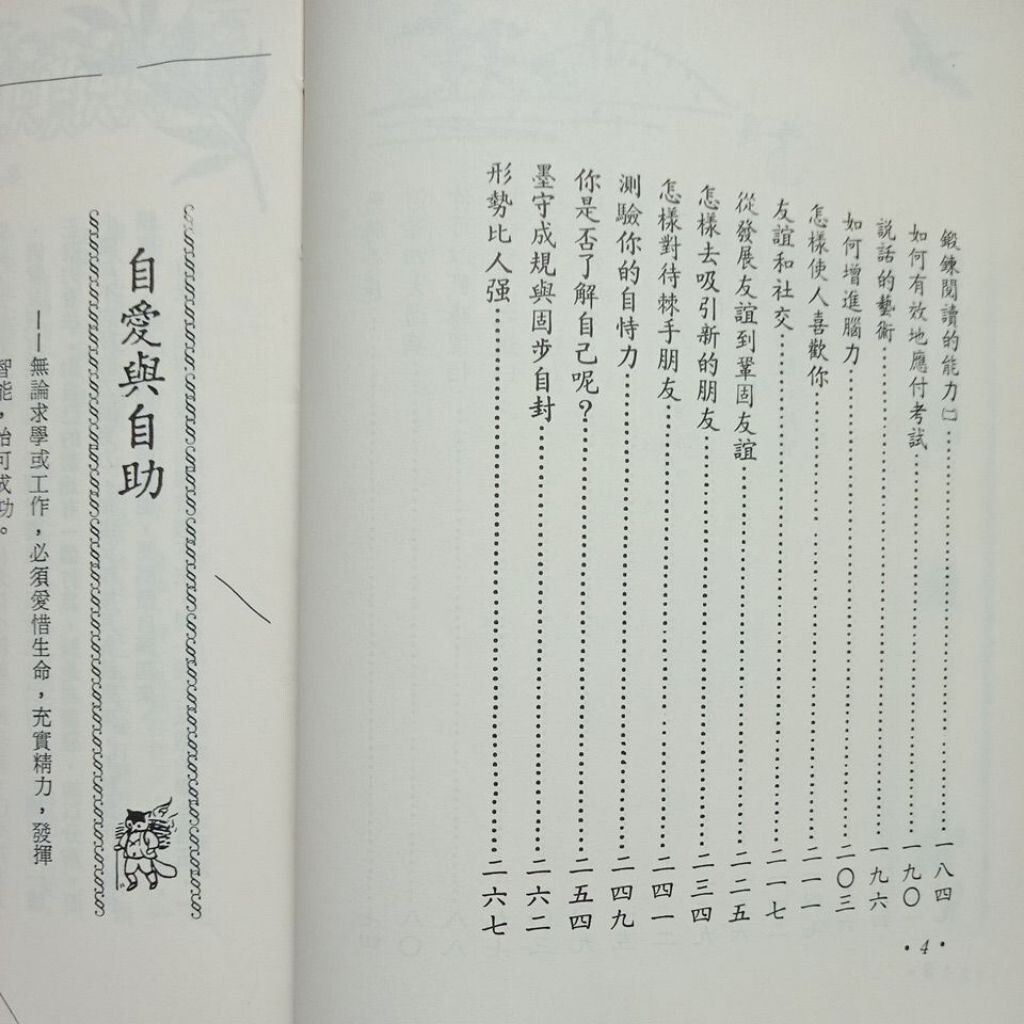 鍛鍊閱讀的能力㈡……一八四
如何有效地應付考試……一九〇
説話的藝術……一九六
如何增進腦力……二〇三
怎樣使人喜歡你……二一一
友誼和社交……二一七
從發展友誼到鞏固友誼……二二五
怎樣去吸引新的朋友……二三四
怎樣對待棘手朋友……二四一
測驗你的自恃力……二四九
你是否了解自己呢？……二五四
墨守成規與固步自封……二六二
形勢比人强……二六七
•4•
自愛與自助
——無論求學或工作，必須愛惜生命，充實精力，發揮
智能，始可成功。